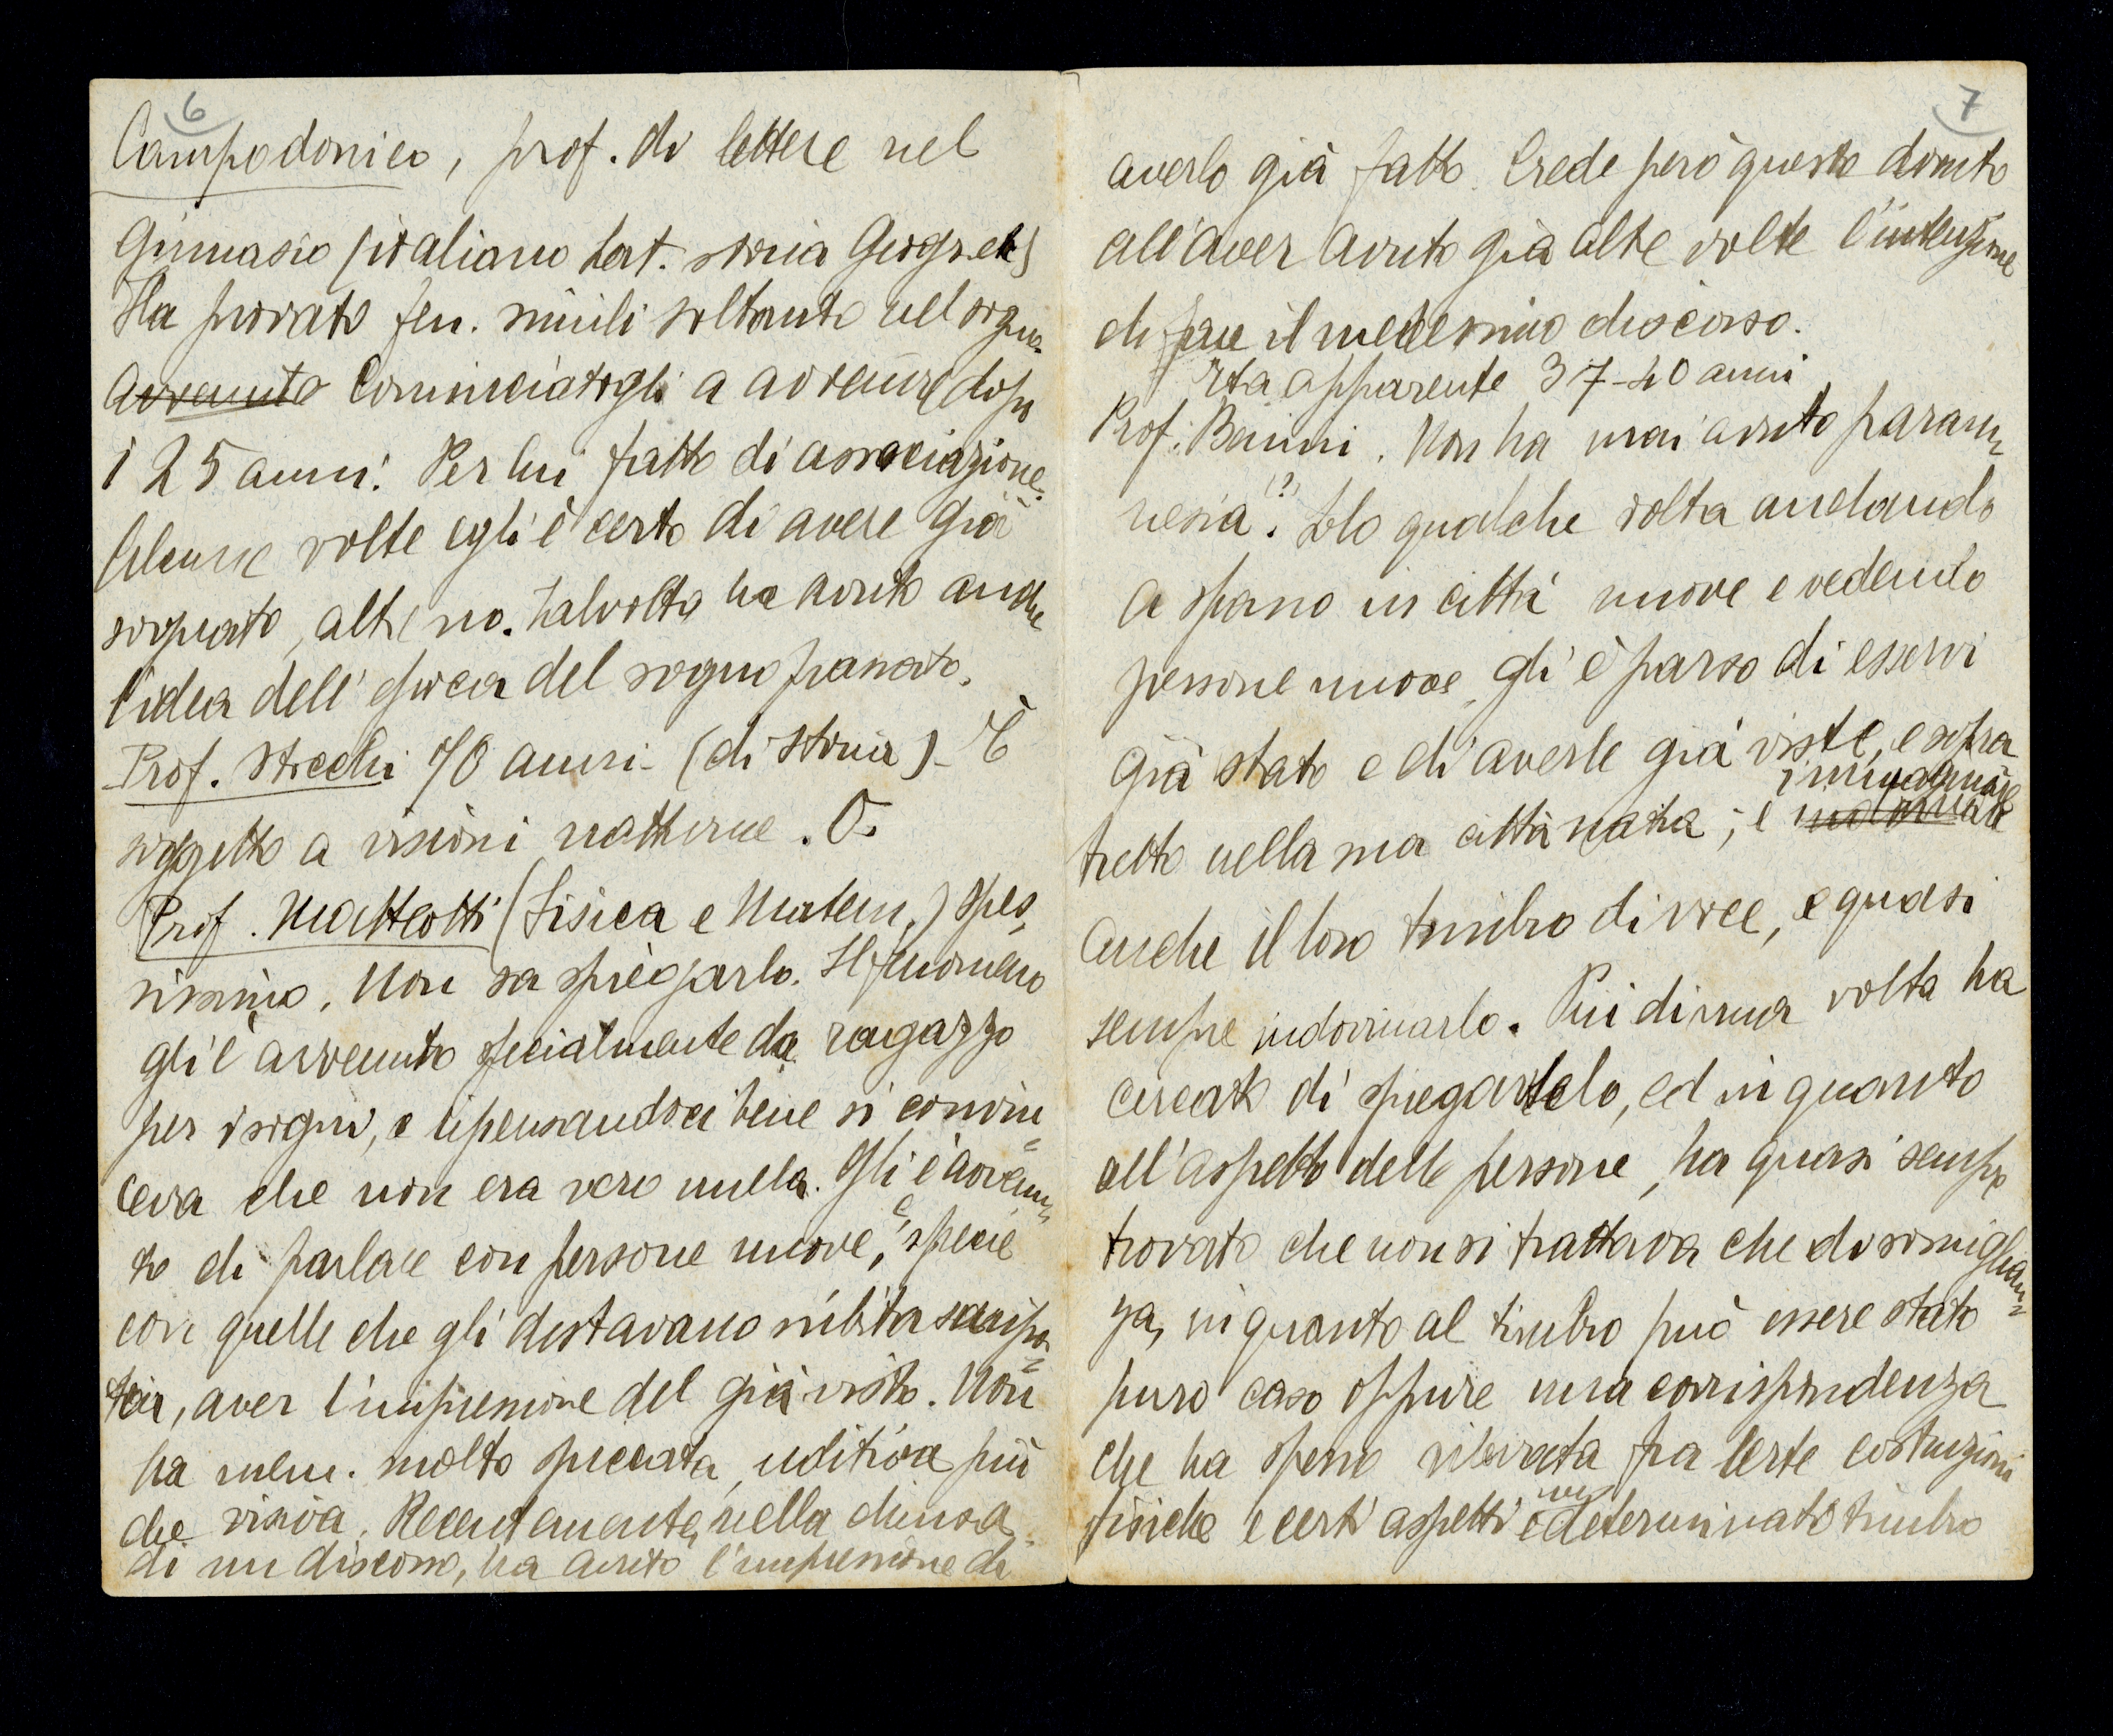 6
Campodonico, prof. di lettere nel
Ginnasio (italiano lat. storia Geogr. etc)
Ha provato fen. simili soltanto nel sogno
avvenuto Cominciatogli a avvenire dopo
i 25 anni. Per lui fatto di associazione.
Alcune volte egli è certo di avere già
sognato, altre no. Talvolta ha avuto anche
l'idea dell'epoca del sogno passato.
Prof. Stecchi 70 anni - (di storia) - È
soggetto a visioni notturne. O.
Prof. Matteotti (Fisica e Matem.) Spes
sissimo. Non sa spiegarlo. Il fenomeno
gli è avvenuto specialmente da ragazzo
per i sogni, e ripensandoci bene si convin=
ceva che non era vero nulla. Gli è avvenu=
to di parlare con persone nuove, e, specie
con quelle che gli destavano subita simpa=
tia, aver l'impressione del già visto. Non
ha mem. molto spiccata, uditiva più
che visiva. Recentemente, nella chiusa
di un discorso, ha avuto l'impressione di
7
averlo già fatto. Crede però questo dovuto
all'aver avuto già altre volte l'intenzione
di fare il medesimo discorso.
Età apparente 37-40 anni
Prof. Banini. Non ha mai avuto param=
nesia (?). Solo qualche volta andando
a spasso in città nuove e vedendo
persone nuove, gli è parso di esservi
già stato e di averle già viste, e sopra
immaginare
tutto nella sua città natia; e indovinare
anche il loro timbro di voce, e quasi
sempre indovinarlo. Più di una volta ha
cercato di spiegarselo, ed in quanto
all'aspetto delle persone, ha quasi sempre
trovato che non si trattava che di somiglian=
za, in quanto al timbro può essere stato
puro caso oppure una corrispondenza
che ha spesso rilevata fra certe costruzioni
fisiche e certi aspetti e un determinato timbro